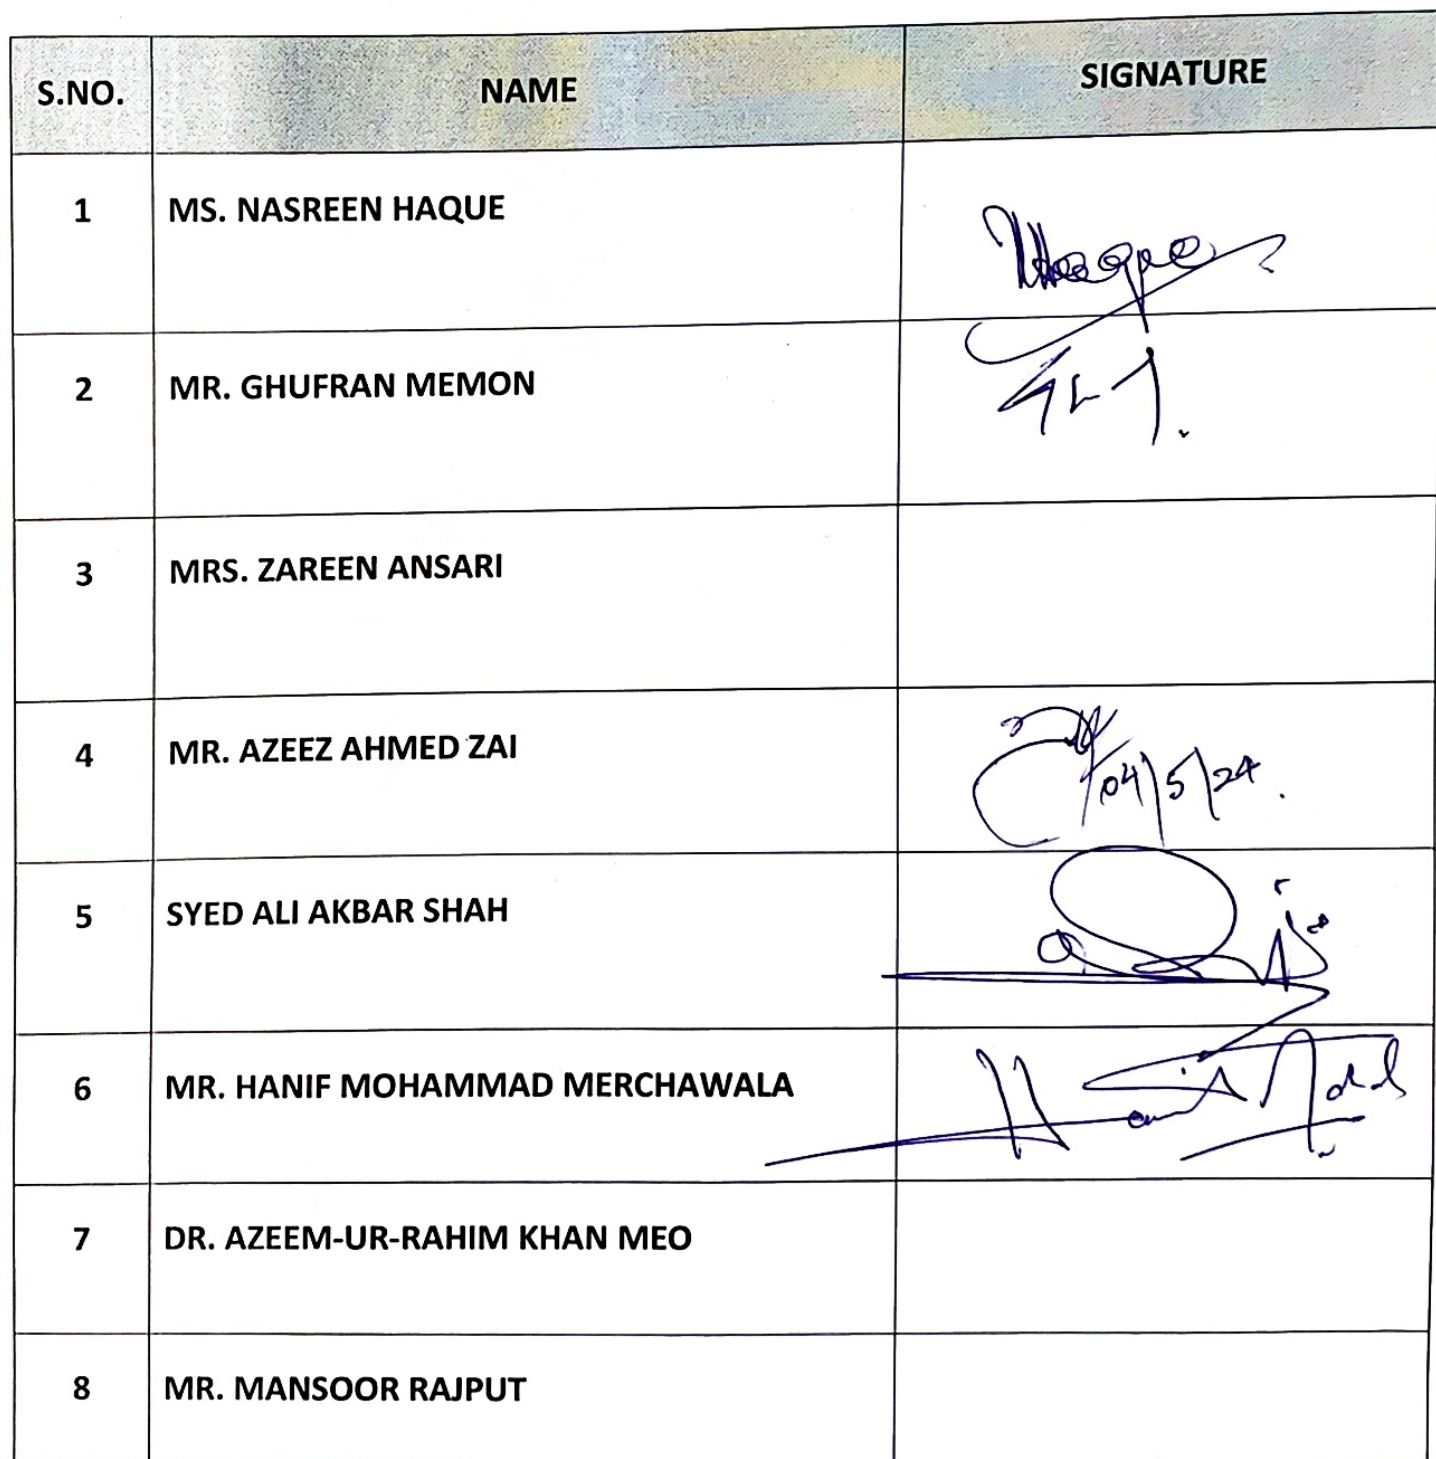 S.NO. NAME SIGNATURE
1 MS. NASREEN HAQUE NHaque
2 MR. GHUFRAN MEMON
3 MRS. ZAREEN ANSARI
4 MR. AZEEZ AHMED ZAI 04/5/24.
5 SYED ALI AKBAR SHAH
6 MR. HANIF MOHAMMAD MERCHAWALA
7 DR. AZEEM-UR-RAHIM KHAN MEO
8 MR. MANSOOR RAJPUT